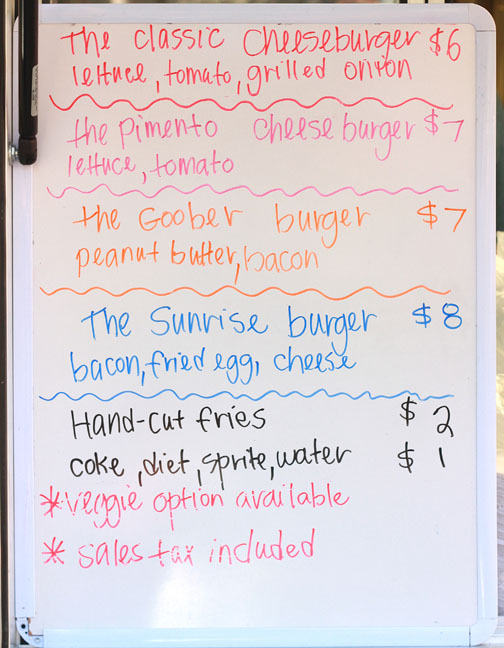 The Classic Cheeseburger $6
lettuce, tomato, grilled onion
the pimento cheese burger $7
lettuce, tomato
the Goober burger $7
peanut butter, bacon
The Sunrise burger $8
bacon, fried egg, cheese
Hand-cut fries $2
coke, diet, sprite, water $1
*veggie option available
* sales tax included